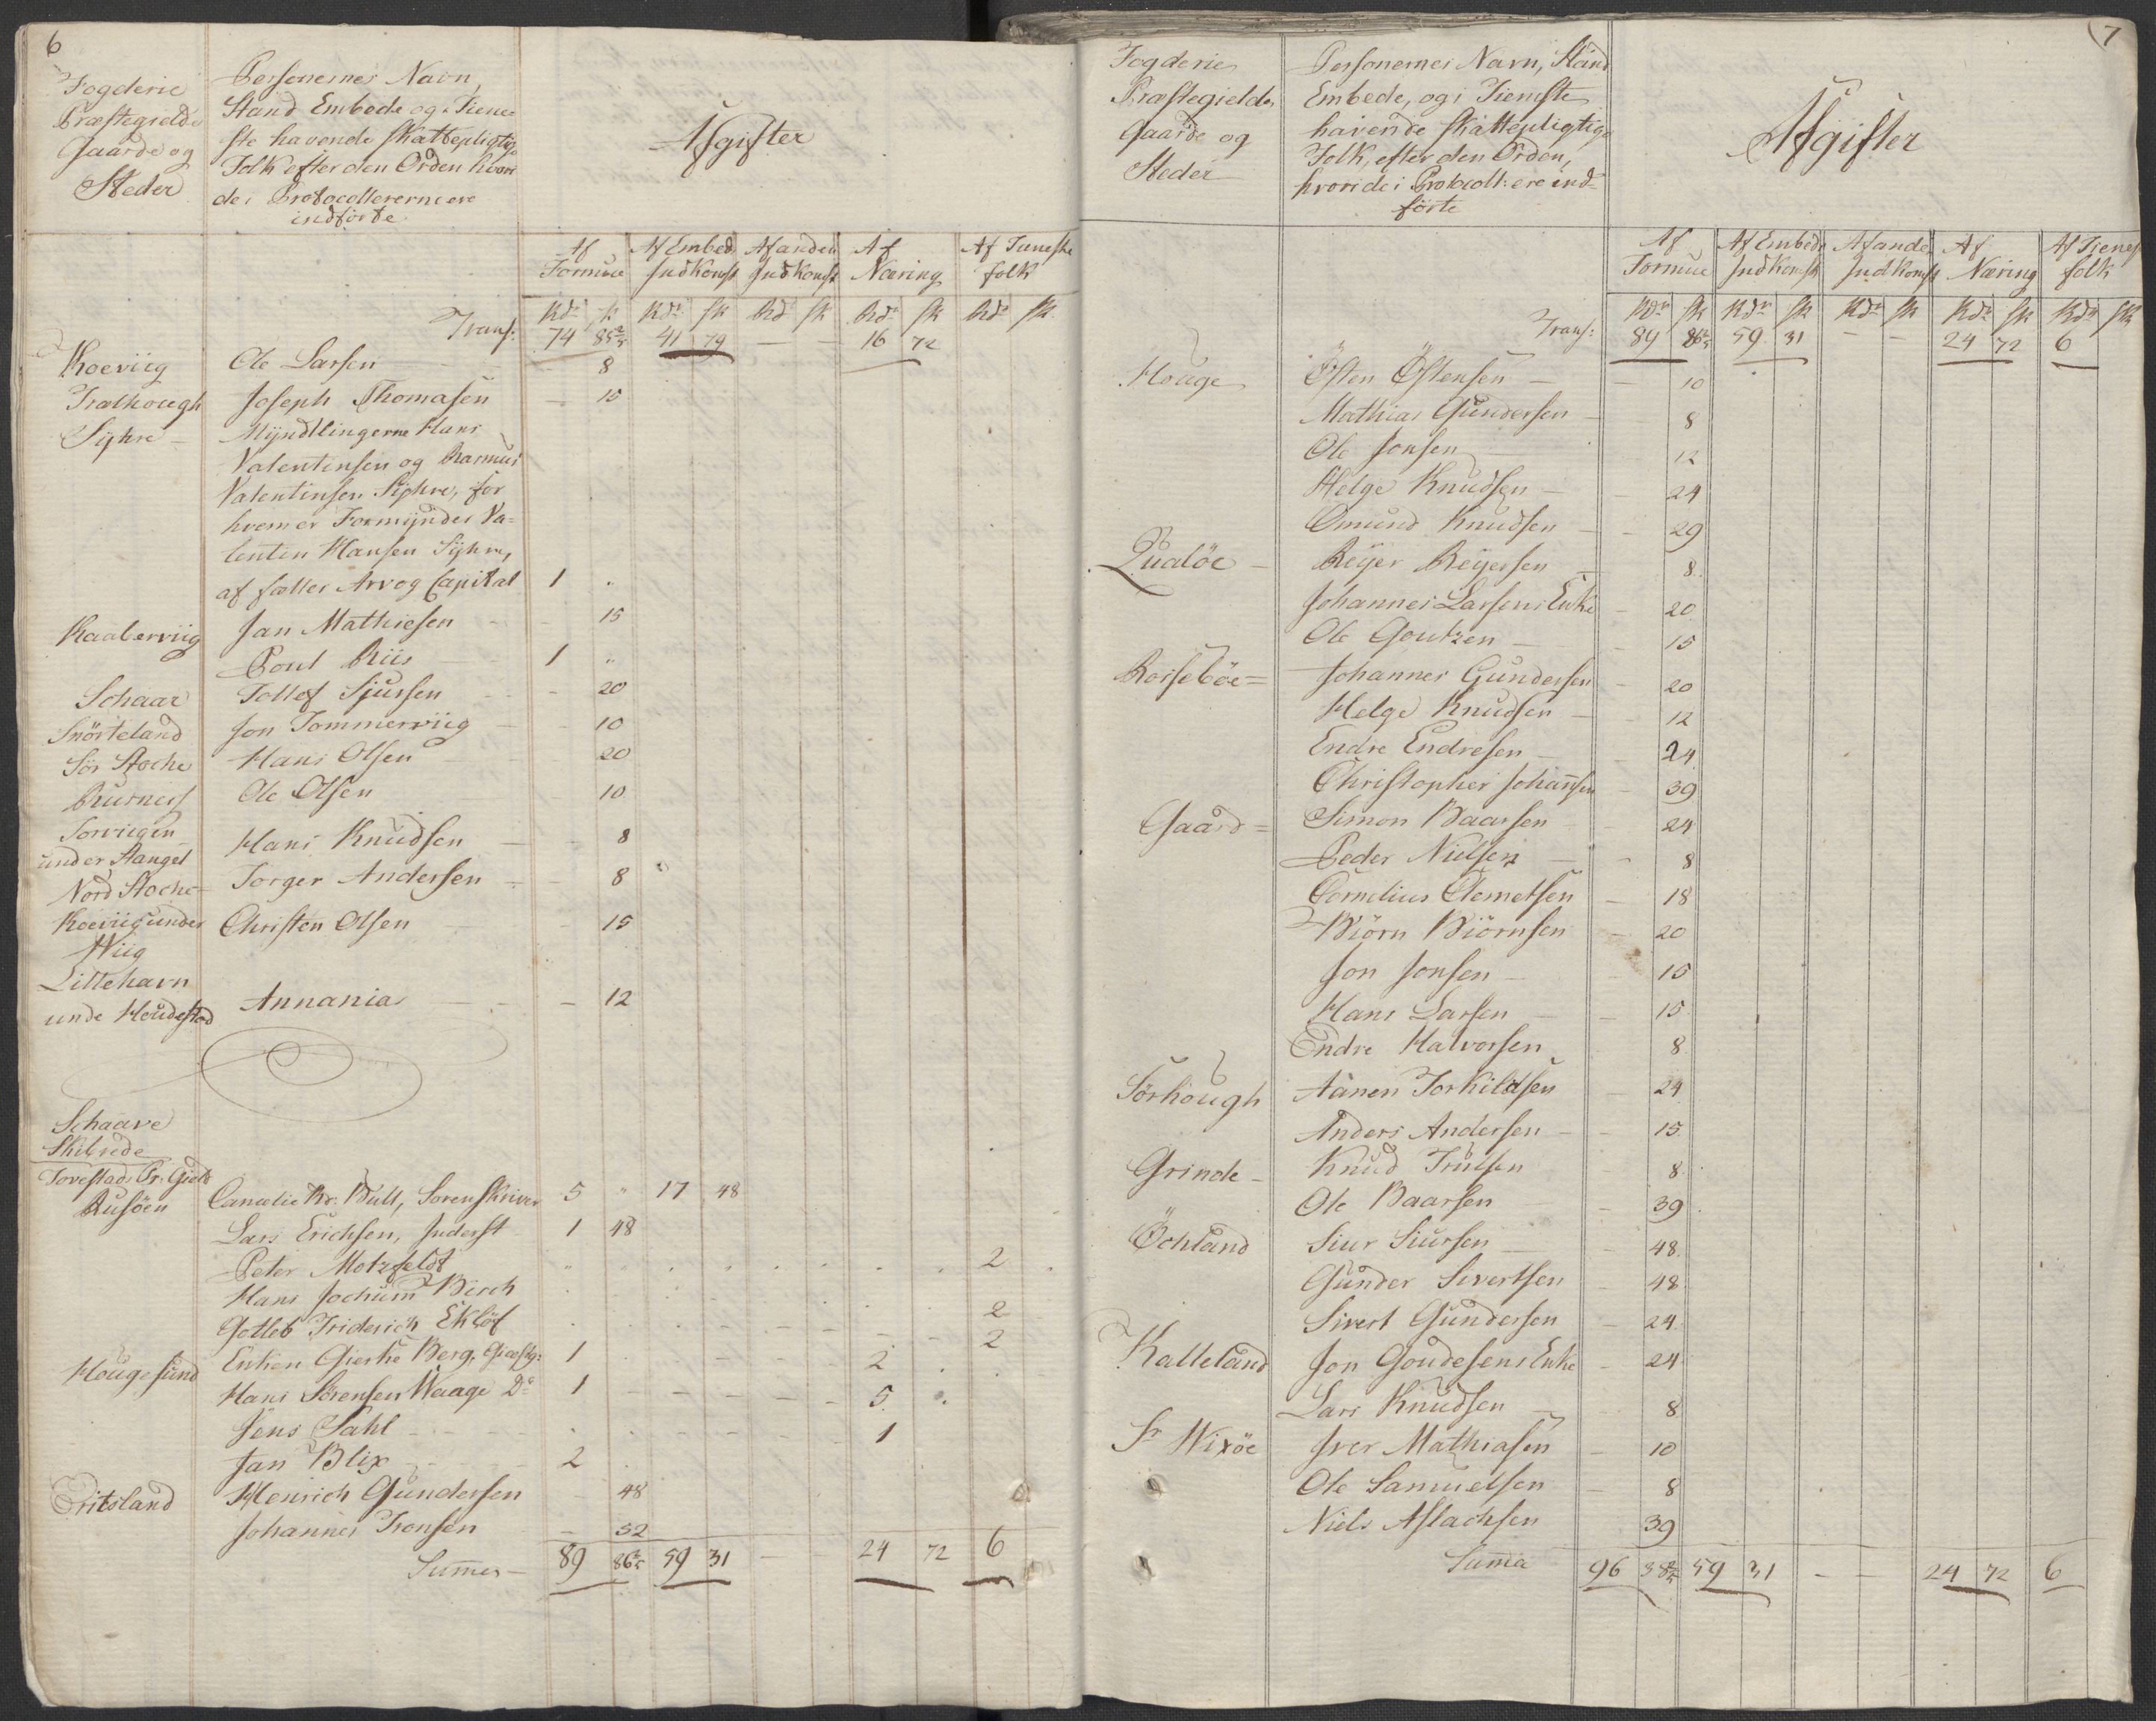 6
Fogderie
Præstegield
Gaarde og
Steder
Personernes Navn,
Stand Embede og i Tiene-
ste havende Skattepligtige
Folk efter den Orden hvori
de i Protocollererne ere
indførte
Afgifter
Af Formue Af Embed. Indkomst Af anden Indkomst Af Næring Af Tieneste folk
Rdr sk Rdr sk Rdr sk Rdr sk Rdr sk
Transp: 74 85 2/5 41 79 — — 16 72
Koeviig Ole Larsen — 8
Trælhough Joseph Thomasen — 15
Syhre — Myndlingerne Hans
Valentinsen og Rasmus
Valentinsen Syhre, for
hvem er Formynder Va-
lentin Hansen Syhre,
af fælles Arv og Capital 1 "
Kaaberviig Jan Mathiesen — 15
Poul Riis 1 "
Schaar Tollef Sjursen — 20
Snörteland Jon Tommerviig — 10
Sör Stoche Hans Olsen 20
Rusness Ole Olsen 10
Sorviigen
under Stangel Hans Knudsen — 8
Nord Stoche Torger Andersen — 8
Koeviig under
Wiig Christen Olsen — 15
Littehavn
unde Houdestad Annanias — 12
Schaare
Skibrede
Torvestad Pr: Gield
Rusöen Cancelie Rd: Bull, Sorenskriver 5 " 17 48
Lars Erichsen, Inderst 1 48
Peter Motzfeldt " 2
Hans Jochum Berch
Gotleb Friderich Eklöf 2
2
Hougesund Enken Giertrue Berg, Giæstg: 1 2
Hans Sörensen Waage Do 1 — 5
Jens Sahl 1
Jan Blix 2
Eritsland Henrich Gundersen — 48
Johannes Tronsen — 52
Summer — 89 86 2/5 59 31 — 24 72 6
7
Fogderie
Præstegielder
Gaarde og
Steder
Personernes Navn, Stand
Embede, og i Tieneste
havende skattepligtige
Folk, efter den Orden,
hvori de i Protocoll: ere ind-
førte
Afgifter
Af Formue Af Embede Indkomst Af anden Indkomst Af Næring Af Tienest folk
Rdr sk Rdr sk Rdr sk Rdr sk Rdr sk
Transp: 89 86 2/5 59 31 — — 24 72 6
Houge Östen Östensen — 10
Mathias Gundersen — 8
Ole Jonsen — 12
Helge Knudsen — 24
Omund Knudsen — 29
Qualöe — Reyer Reyersen — 8
Johannes Larsens Enke — 20
Ole Goutzen — 15
Roisebøe = Johannes Gundersen — 20
Helge Knudsen — 12
Endre Endresen — 24
Christopher Johannsen — 39
Gaard = Simon Baarsen — 24
Peder Nielsen — 8
Cornelius Clemetsen — 18
Biörn Biörnsen — 20
Jon Jonsen — 15
Hans Larsen — 15
Endre Halvorsen 8
Sörhough Aanen Torkildsen — 24
Anders Andersen — 15
Grinde — Knud Trulsen 8
Ole Baarsen — 39
Öchland Siur Siursen — 48
Gunder Sivertsen — 48
Sivert Gundersen — 24
Kalleland Jon Goudesens Enke — 24
Lars Knudsen — 8
Sr Wixöe Iver Mathiasen — 10
Ole Samuelsen — 8
Niels Aslachsen 39
Summa 96 38 2/5 59 31 — — 24 72 6